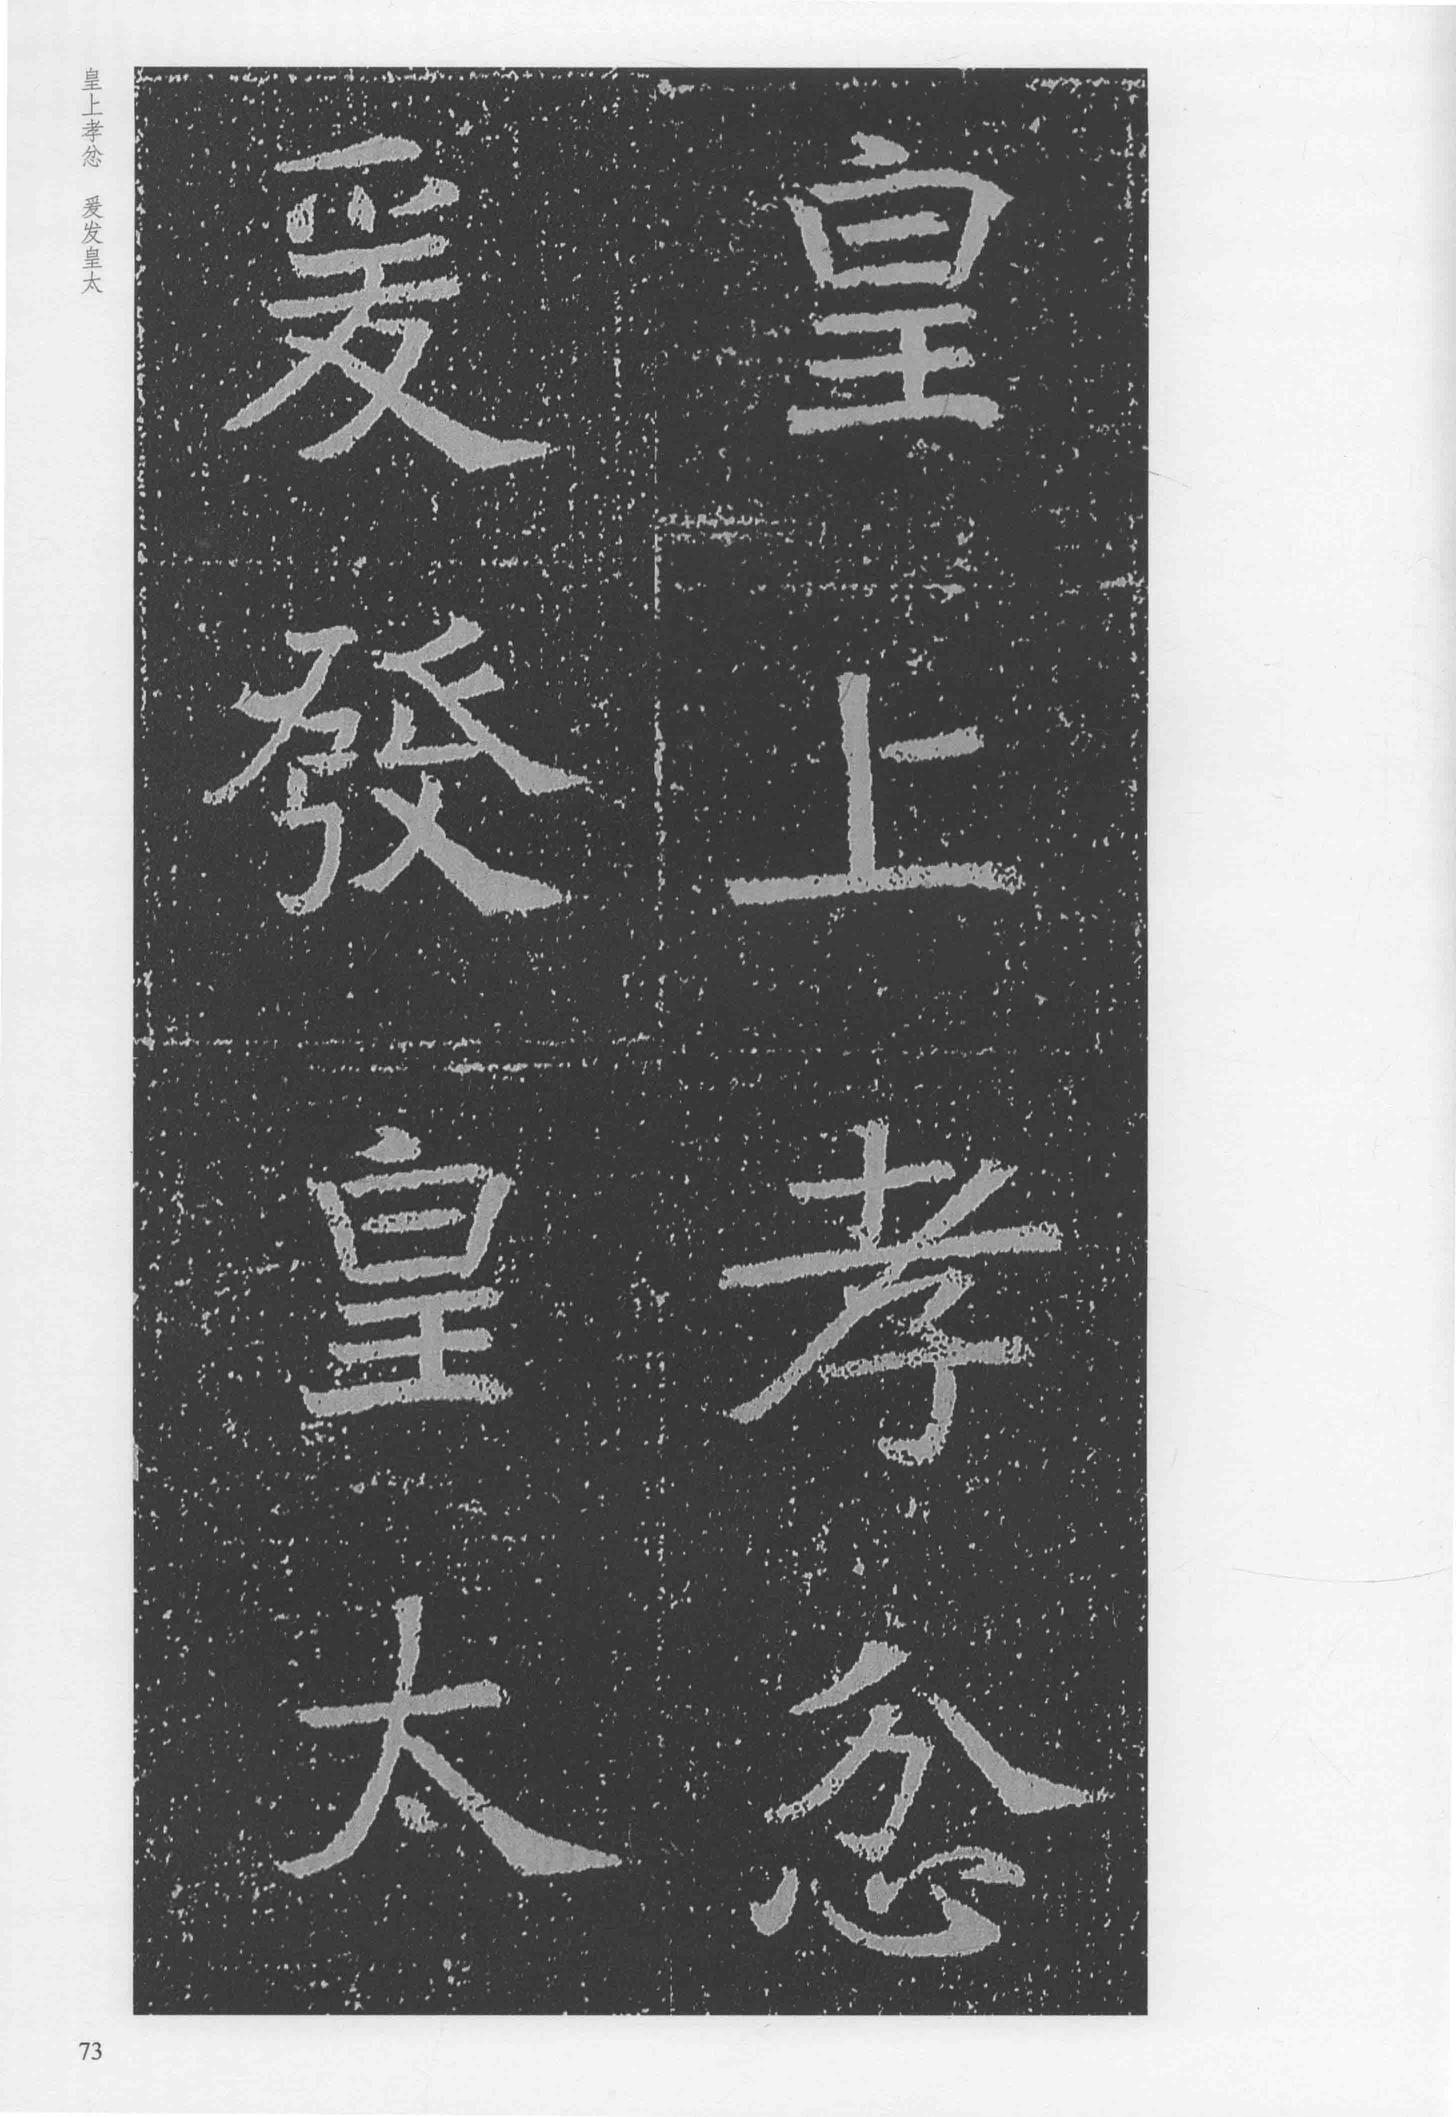 皇上孝忿
爰發皇太
皇上孝忿 爰发皇太
73